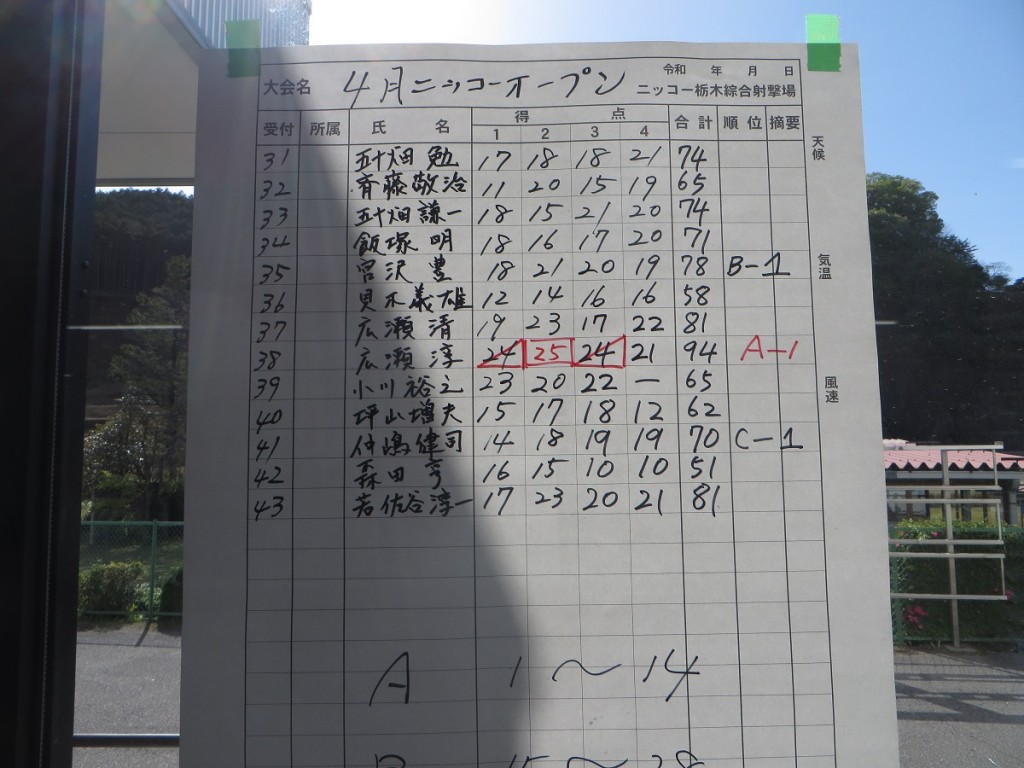 令和 年 月 日
大会名 4月ニッコーオープン ニッコー栃木綜合射撃場
受付 所属 氏 名 得 点 合計 順位 摘要
1 2 3 4
天候
31 五十畑 勉 17 18 18 21 74
32 斉藤敬治 11 20 15 19 65
33 五十畑謙一 18 15 21 20 74
34 飯塚 明 18 16 17 20 71
気温
35 宮沢 豊 18 21 20 19 78 B-1
36 義雄 12 14 16 16 58
37 広瀬 清 19 23 17 22 81
38 広瀬 淳 24 25 24 21 94 A-1
風速
39 小川裕之 23 20 22 — 65
40 坪山増夫 15 17 18 12 62
41 仲嶋健司 14 18 19 19 70 C-1
42 森田 亨 16 15 10 10 51
43 若佐谷淳一 17 23 20 21 81
A 1〜14
B 15〜28